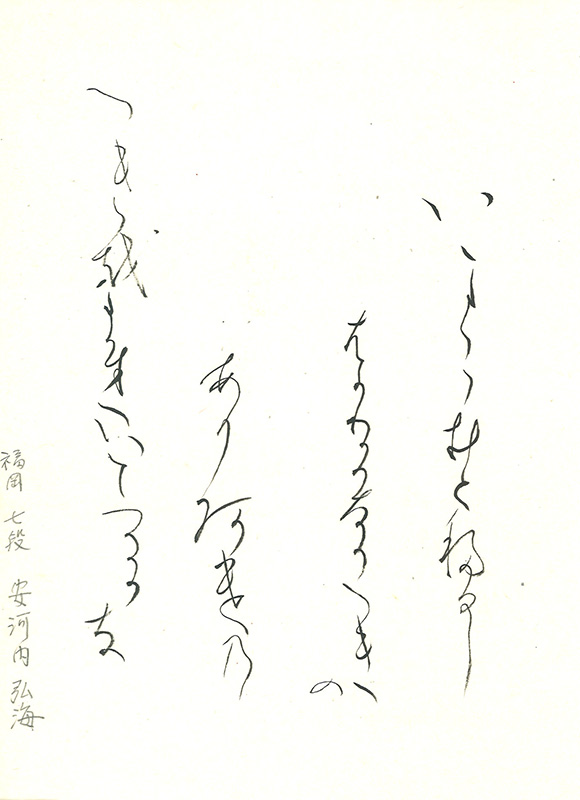 いまこむといひし
はかりになかつきの
ありあけ乃
つき越まちいてつるかな
福岡 七段 安河内 弘海